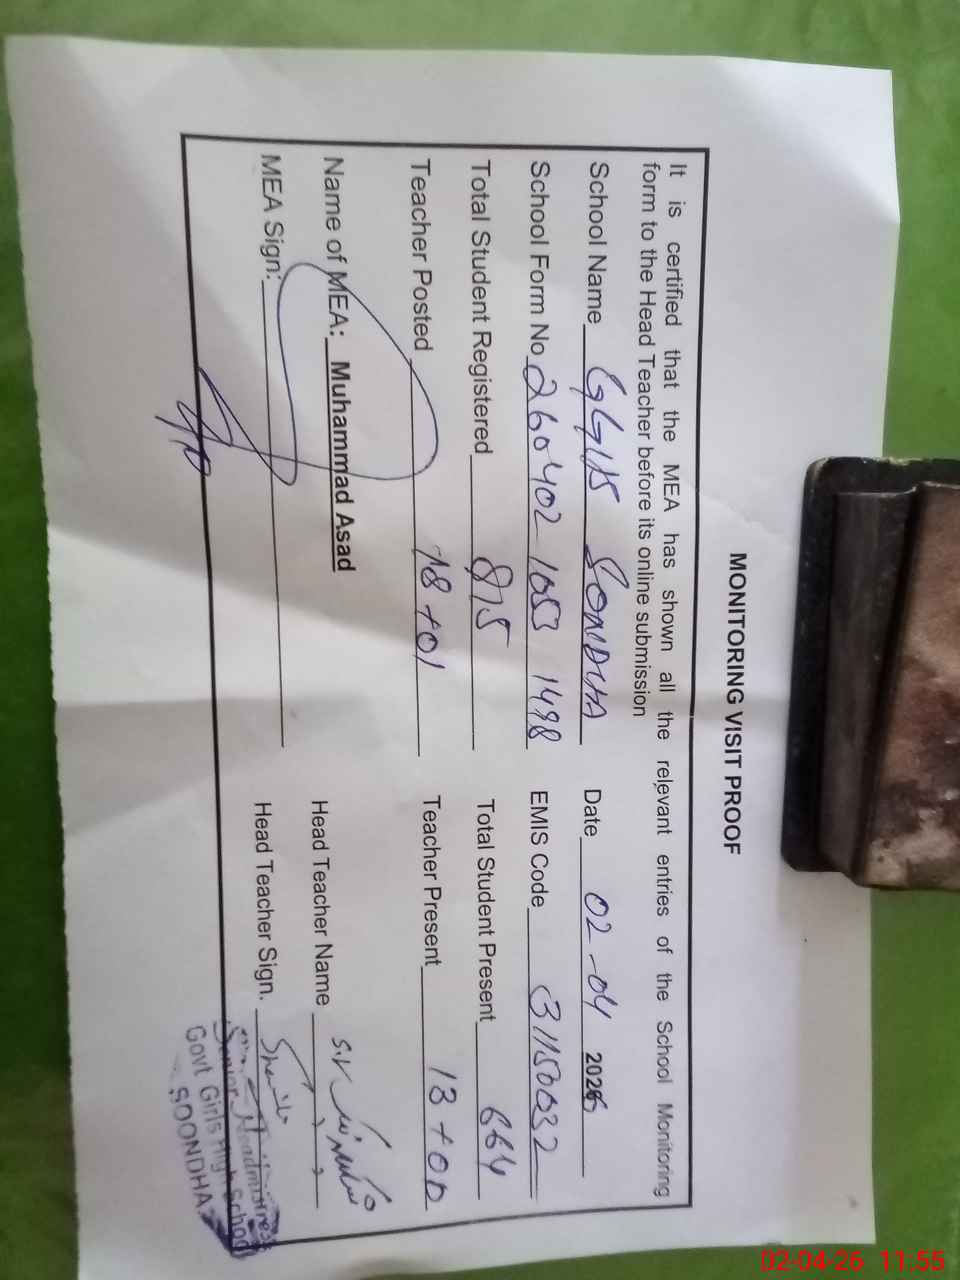 MONITORING VISIT PROOF
It is certified that the MEA has shown all the relevant entries of the School Monitoring
form to the Head Teacher before its online submission
School Name GGHS SONDHA Date 02-04 2026
School Form No 260402 1053 1498 EMIS Code 31150032
Total Student Registered 815 Total Student Present 664
Teacher Posted 18+01 Teacher Present 13+00
Name of MEA: Muhammad Asad Head Teacher Name
MEA Sign: Head Teacher Sign.
Senior Headmistress
Govt Girls High School
SOONDHA
02-04-26 11:55